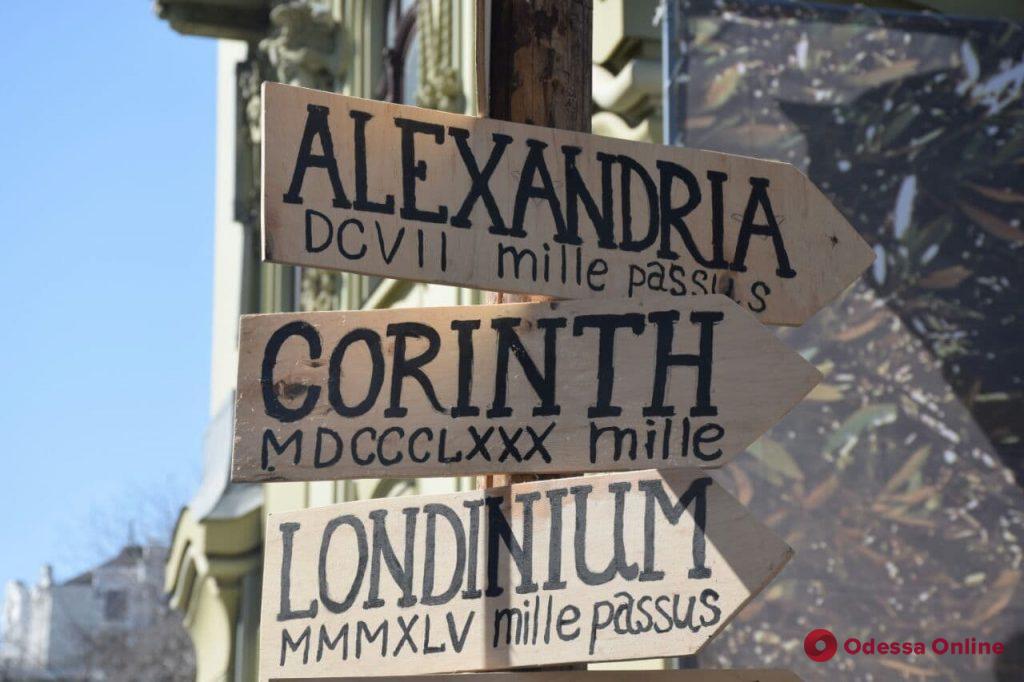 ALEXANDRIA
DCVII mille passus
CORINTH
MDCCCLXXX mille
LONDINIUM
MMMXLV mille passus
Odessa Online